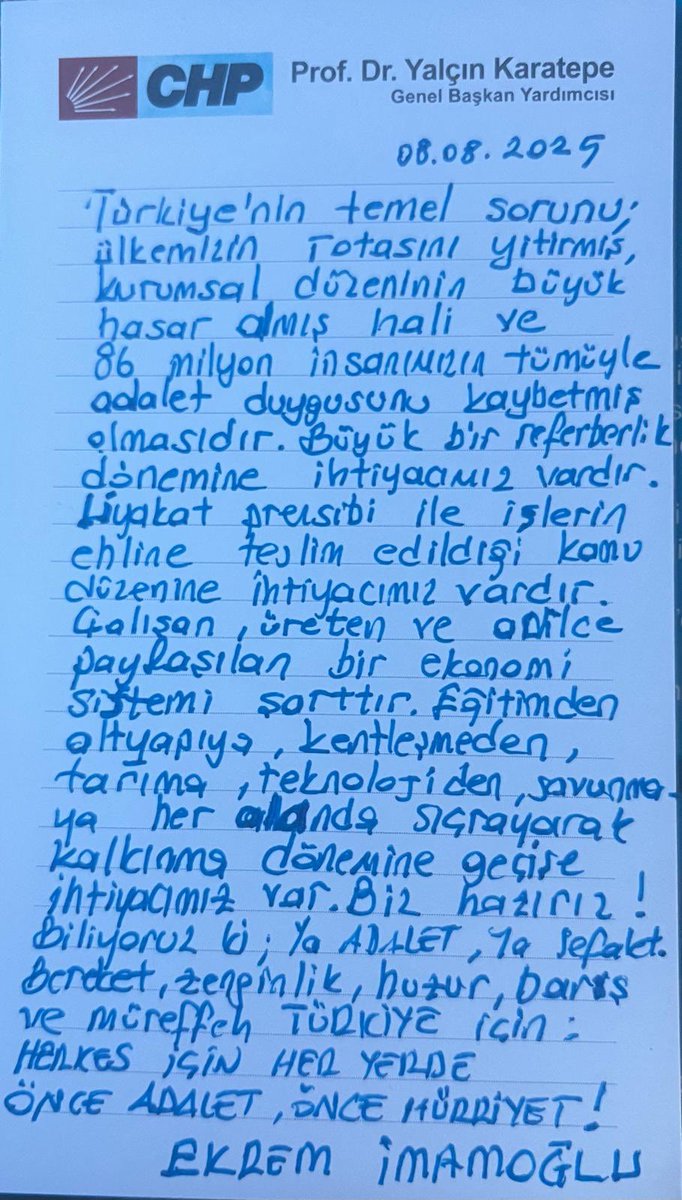 CHP
Prof. Dr. Yalçın Karatepe
Genel Başkan Yardımcısı
08.08.2025
Türkiye'nin temel sorunu;
ülkemizin rotasını yitirmiş,
kurumsal düzeninin büyük
hasar almış hali ve
86 milyon insanımızın tümüyle
adalet duygusunu kaybetmiş
olmasıdır. Büyük bir seferberlik
dönemine ihtiyacımız vardır.
Liyakat prensibi ile işlerin
ehline teslim edildiği kamu
düzenine ihtiyacımız vardır.
Çalışan, üreten ve adilce
paylaşılan bir ekonomi
sistemi şarttır. Eğitimden
altyapıya, kentleşmeden,
tarıma, teknolojiden, savunma-
ya her alanda sıçrayarak
kalkınma dönemine geçişe
ihtiyacımız var. Biz hazırız!
Biliyoruz ki; Ya ADALET, Ya sefalet.
Bereket, zenginlik, huzur, barış
ve müreffeh TÜRKİYE için:
HERKES İÇİN HER YERDE
ÖNCE ADALET, ÖNCE HÜRRİYET!
EKREM İMAMOĞLU